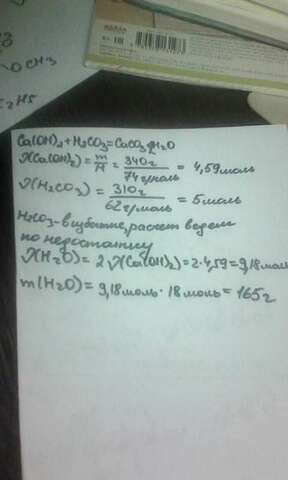 OCH3
C2H5
Ca(OH)2 + H2CO3 = CaCO3 + 2H2O
ν(Ca(OH)2) = m/M = 340г/74г/моль = 4,59моль
ν(H2CO3) = 310г/62г/моль = 5моль
H2CO3 - в избытке, расчет ведем
по недостатку
ν(H2O) = 2ν(Ca(OH)2) = 2·4,59 = 9,18моль
m(H2O) = 9,18моль · 18моль = 165г